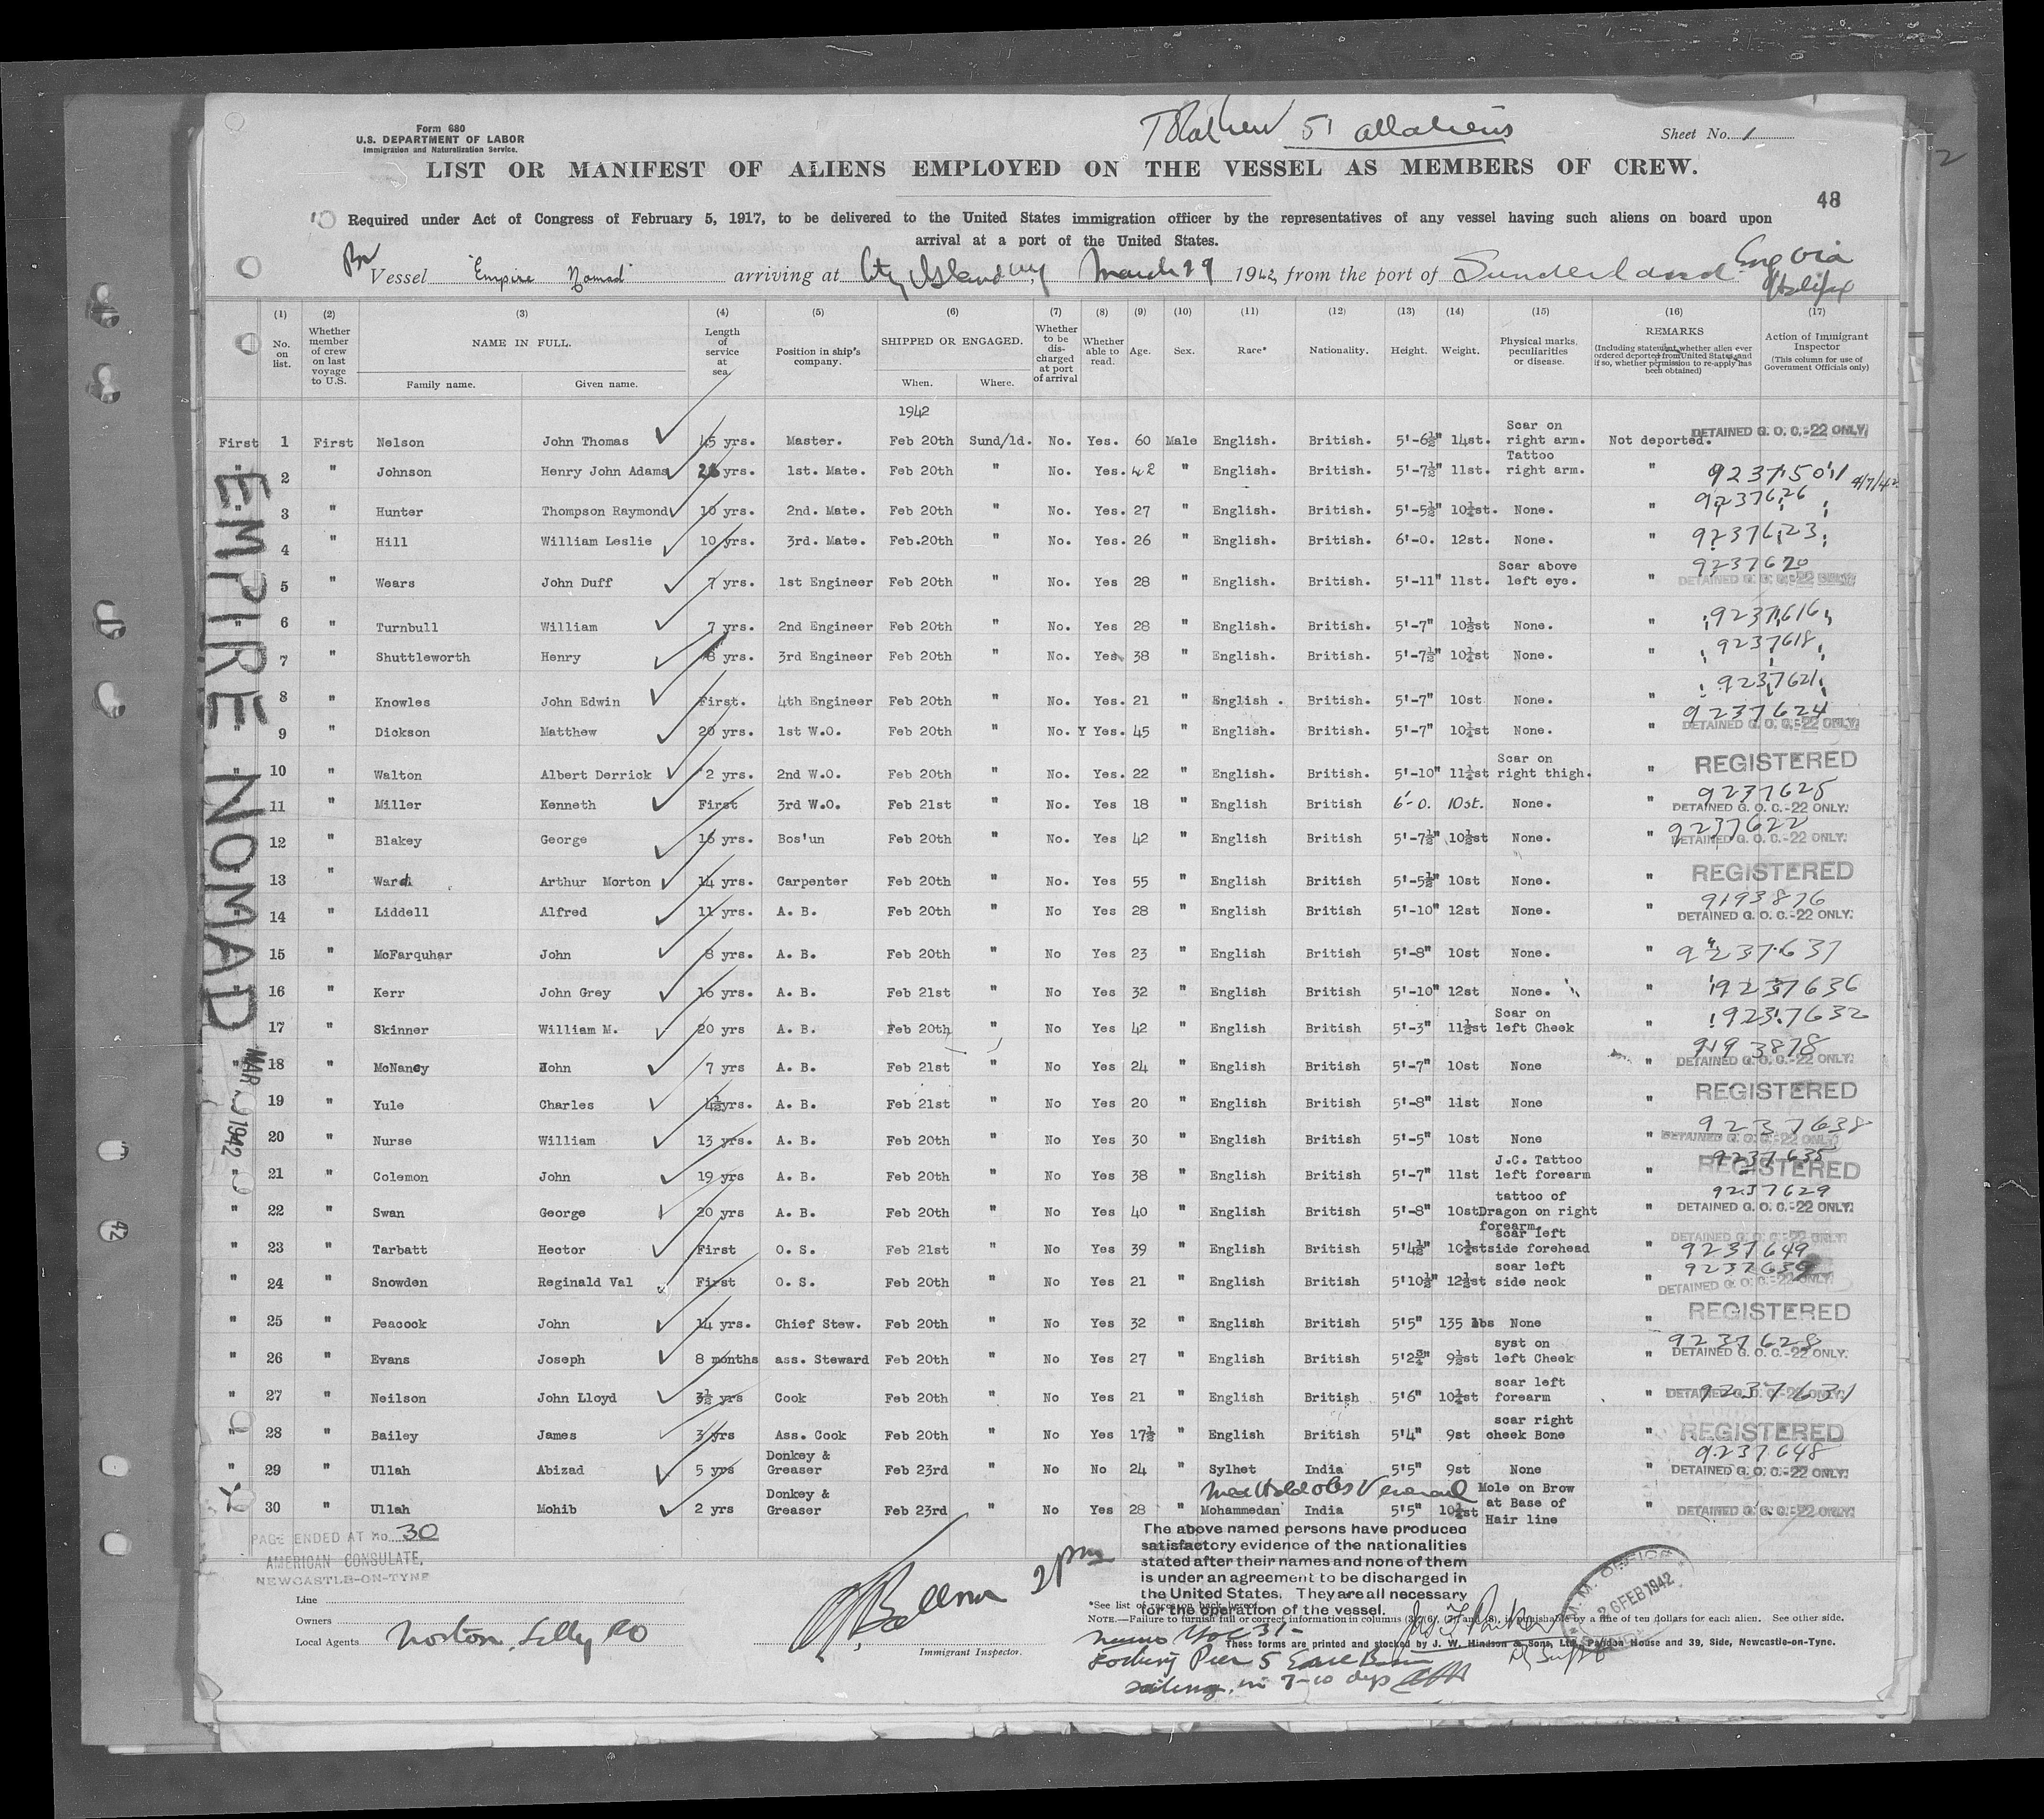 Form 680
U.S. DEPARTMENT OF LABOR
Immigration and Naturalization Service.
51 all aliens
Sheet No. 1
2
LIST OR MANIFEST OF ALIENS EMPLOYED ON THE VESSEL AS MEMBERS OF CREW.
48
Required under Act of Congress of February 5, 1917, to be delivered to the United States immigration officer by the representatives of any vessel having such aliens on board upon
arrival at a port of the United States.
Br Vessel "Empire Nomad" arriving at City Island NY March 29 1942, from the port of Sunderland Eng via
Halifax
(1) (2) (3) (4) (5) (6) (7) (8) (9) (10) (11) (12) (13) (14) (15) (16) (17)
No. on list. Whether member of crew on last voyage to U.S. NAME IN FULL. Family name. Given name. Length of service at sea. Position in ship's company. SHIPPED OR ENGAGED. When. Where. Whether to be discharged at port of arrival Whether able to read. Age. Sex. Race* Nationality. Height. Weight. Physical marks, peculiarities or disease. REMARKS (Including statement whether alien ever ordered deported from United States, and if so, whether permission to re-apply has been obtained) Action of Immigrant Inspector (This column for use of Government Officials only)
1942
First 1 First Nelson John Thomas 45 yrs. Master. Feb 20th Sund/ld. No. Yes. 60 Male English. British. 5'-6½" 14st. Scar on right arm. Not deported. DETAINED G. O. C.-22 ONLY.
" 2 " Johnson Henry John Adams yrs. 1st. Mate. Feb 20th " No. Yes. 42 " English. British. 5'-7½" 11st. Tattoo right arm. " 9237501 4/7/42
" 3 " Hunter Thompson Raymond 10 yrs. 2nd. Mate. Feb 20th " No. Yes. 27 " English. British. 5'-5½" 10½st. None. " 9237626
4 " Hill William Leslie 10 yrs. 3rd. Mate. Feb.20th " No. Yes. 26 " English. British. 6'-0. 12st. None. " 9237623
5 " Wears John Duff 7 yrs. 1st Engineer Feb 20th " No. Yes 28 " English. British. 5'-11" 11st. Scar above left eye. " 9237620 DETAINED G. O. C.-22 ONLY.
6 " Turnbull William 7 yrs. 2nd Engineer Feb 20th " No. Yes 28 " English. British. 5'-7" 10½st None. " 9237616
7 " Shuttleworth Henry 8 yrs. 3rd Engineer Feb 20th " No. Yes 38 " English. British. 5'-7½" 10½st None. " 9237618
8 " Knowles John Edwin First. 4th Engineer Feb 20th " No. Yes. 21 " English . British. 5'-7" 10st None. " 9237621
9 " Dickson Matthew 20 yrs. 1st W.O. Feb 20th " No. Y Yes. 45 " English. British. 5'-7" 10½st None. " 9237624 DETAINED G. O. C.-22 ONLY.
10 " Walton Albert Derrick 2 yrs. 2nd W.O. Feb 20th " No. Yes. 22 " English. British. 5'-10" 11½st Scar on right thigh. " REGISTERED
11 " Miller Kenneth First 3rd W.O. Feb 21st " No. Yes 18 " English British 6'-0. 10st. None. " 9237625 DETAINED G. O. C.-22 ONLY.
12 " Blakey George 16 yrs. Bos'un Feb 20th " No. Yes 42 " English British 5'-7½" 10½st None. " 9237622 DETAINED G. O. C.-22 ONLY.
13 " Ward Arthur Morton 14 yrs. Carpenter Feb 20th " No. Yes 55 " English British 5'-5½" 10st None. " REGISTERED
14 " Liddell Alfred 11 yrs. A. B. Feb 20th " No Yes 28 " English British 5'-10" 12st None. " 9193876 DETAINED G. O. C.-22 ONLY.
15 " McFarquhar John 8 yrs. A. B. Feb 20th " No Yes 23 " English British 5'-8" 10st None. " 9237637
16 " Kerr John Grey 16 yrs. A. B. Feb 21st " No Yes 32 " English British 5'-10" 12st None. " 9237636
17 " Skinner William M. 20 yrs A. B. Feb 20th " No Yes 42 " English British 5'-3" 11½st Scar on left Cheek " 9237632
" 18 " McNancy John 7 yrs A. B. Feb 21st " No Yes 24 " English British 5'-7" 10st None " 9193878 DETAINED G. O. C.-22 ONLY.
19 " Yule Charles 4½yrs. A. B. Feb 21st " No Yes 20 " English British 5'-8" 11st None " REGISTERED
20 " Nurse William 13 yrs. A. B. Feb 20th " No Yes 30 " English British 5'-5" 10st None " 9237638 DETAINED G. O. C.-22 ONLY.
" 21 " Colemon John 19 yrs A. B. Feb 20th " No Yes 38 " English British 5'-7" 11st J.C. Tattoo left forearm " 9237635 REGISTERED
" 22 " Swan George 20 yrs A. B. Feb 20th " No Yes 40 " English British 5'-8" 10st tattoo of Dragon on right forearm " 9237629 DETAINED G. O. C.-22 ONLY.
" 23 " Tarbatt Hector First O. S. Feb 21st " No Yes 39 " English British 5'4½" 10½st scar left side forehead " DETAINED G. O. C.-22 ONLY. 9237649
" 24 " Snowden Reginald Val First O. S. Feb 20th " No Yes 21 " English British 5'10½" 12½st scar left side neck " DETAINED G. O. C.-22 ONLY.
" 25 " Peacock John 14 yrs. Chief Stew. Feb 20th " No Yes 32 " English British 5'5" 135 lbs None " REGISTERED
" 26 " Evans Joseph 8 months ass. Steward Feb 20th " No Yes 27 " English British 5'2¾" 9½st syst on left Cheek " 9237628 DETAINED G. O. C.-22 ONLY.
" 27 " Neilson John Lloyd 3½ yrs Cook Feb 20th " No Yes 21 " English British 5'6" 10½st scar left forearm " DETAINED G. O. C.-22 ONLY. 9237631
" 28 " Bailey James 3 yrs Ass. Cook Feb 20th " No Yes 17½ " English British 5'4" 9st scar right cheek Bone " REGISTERED
" 29 " Ullah Abizad 5 yrs Donkey & Greaser Feb 23rd " No No 24 " Sylhet India 5'5" 9st None " 9237648 DETAINED G. O. C.-22 ONLY.
30 " Ullah Mohib 2 yrs Donkey & Greaser Feb 23rd " No Yes 28 " Mohammedan India 5'5" 10½st Mole on Brow at Base of Hair line " DETAINED G. O. C.-22 ONLY.
Med Hold obs Venereal
EMPIRE NOMAD
MAR 29 1942
42
PAGE ENDED AT No. 30
AMERICAN CONSULATE,
NEWCASTLE-ON-TYNE
The above named persons have produced
satisfactory evidence of the nationalities
stated after their names and none of them
is under an agreement to be discharged in
the United States. They are all necessary
for the operation of the vessel.
2pm
M. M. OFFICE
26 FEB 1942
Line
Owners
Local Agents Norton, Lilly Co
Immigrant Inspector.
*See list of races on back hereof.
NOTE.—Failure to furnish full or correct information in columns (3), (6), (7) and (8), is punishable by a fine of ten dollars for each alien. See other side.
These forms are printed and stocked by J. W. Hindson & Sons, Ltd., Pandon House and 39, Side, Newcastle-on-Tyne.
Pier 5
sailing in 7-10 dys